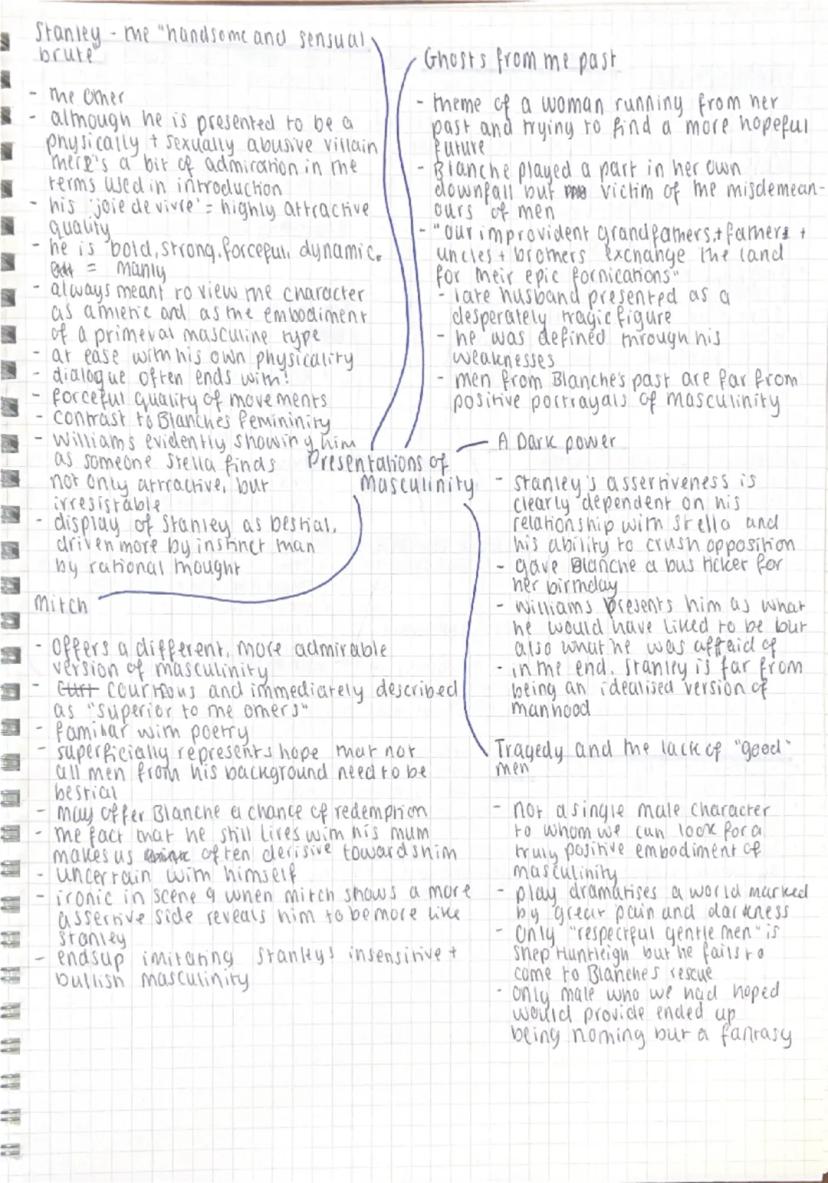 Stanley - the "handsome and sensual
brute"
- the other
- although he is presented to be a
physically + sexually abusive villain
there's a bit of admiration in the
terms used in introduction
- his 'joie de vivre' = highly attractive
quality
- he is bold, strong, forceful, dynamic.
= manly
- always meant to view the character
as athletic and as the embodiment
of a primeval masculine type
- at ease with his own physicality
- dialogue often ends with!
- forceful quality of movements
- contrast to Blanches femininity
- Williams evidently showing him
as someone Stella finds
not only attractive, but
irresistable
- display of Stanley as bestial,
driven more by instinct than
by rational thought
Presentations of
Masculinity
Ghosts from the past
- theme of a woman running from her
past and trying to find a more hopeful
future
- Blanche played a part in her own
downfall but victim of the misdemean-
ours of men
- "our improvident grandfathers + fathers +
uncles + brothers exchange the land
for their epic fornications"
- late husband presented as a
desperately tragic figure
- he was defined through his
weaknesses
- men from Blanche's past are far from
positive portrayals of masculinity
A Dark power
- Stanley's assertiveness is
clearly dependent on his
relationship with Stella and
his ability to crush opposition
- gave Blanche a bus ticket for
her birthday
- Williams presents him as what
he would have liked to be but
also what he was affraid of
- in the end, Stanley is far from
being an idealised version of
manhood
Mitch
- offers a different, more admirable
version of masculinity
- courtious and immediately described
as "superior to the others"
- familiar with poetry
- superficially represents hope that not
all men from his background need to be
bestial
- may offer Blanche a chance of redemption
- the fact that he still lives with his mum
makes us often derisive towards him
- uncertain with himself
- ironic in scene 9 when mitch shows a more
assertive side reveals him to be more like
Stanley
- ends up imitating Stanleys insensitive +
bullish masculinity
Tragedy and the lack of "good"
men
- not a single male character
to whom we can look for a
truly positive embodiment of
masculinity
- play dramatises a world marked
by great pain and darkness
- only "respectful gentle men" is
Shep Huntleigh but he fails to
come to Blanches rescue
- only male who we had hoped
would provide ended up
being nothing but a fantasy